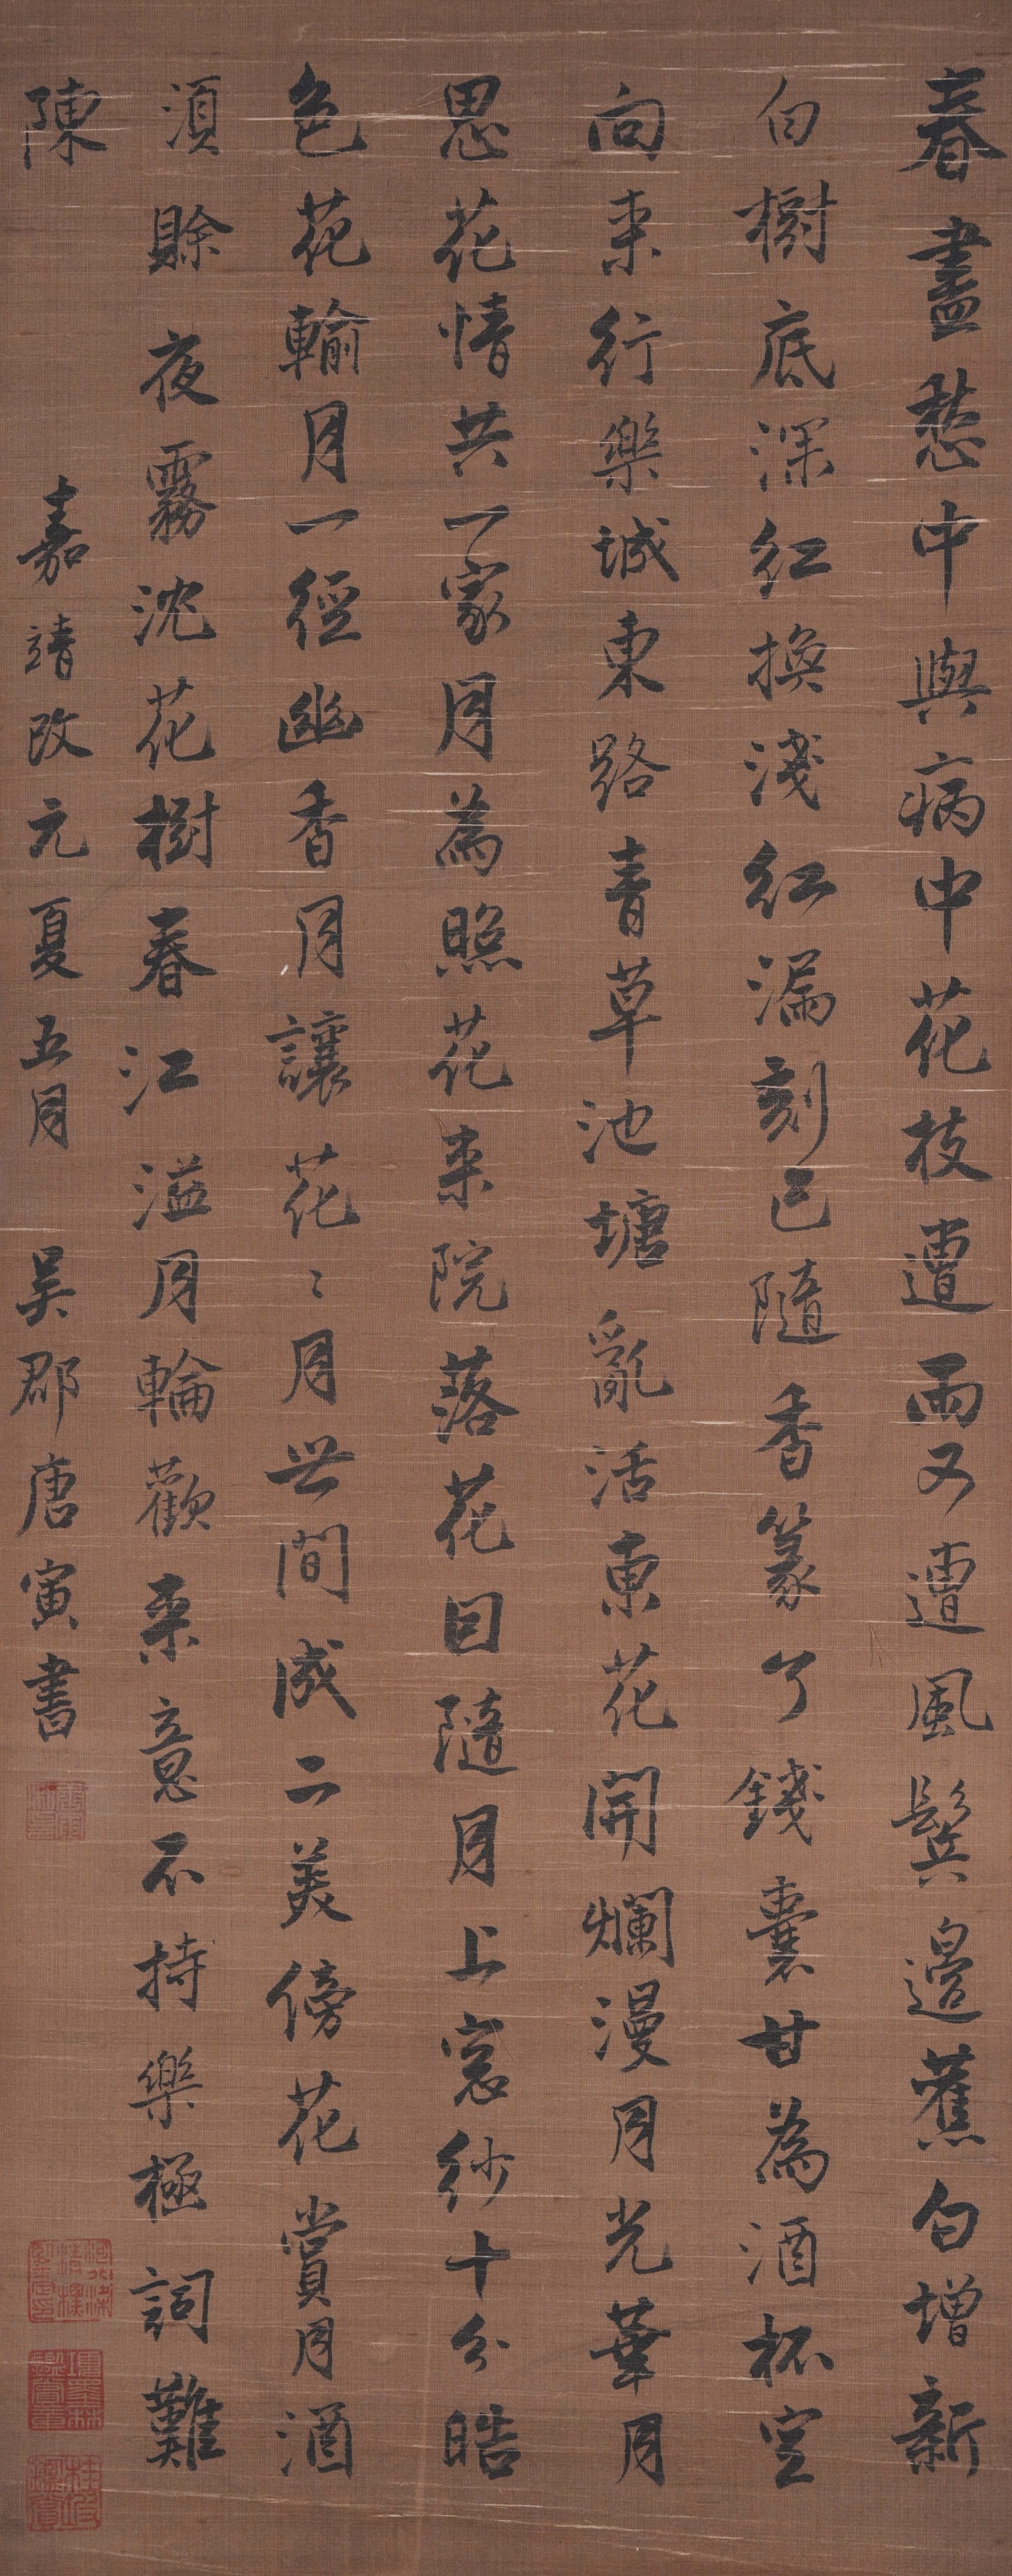 春盡愁中與病中花枝遭雨又遭風鬢邊舊白增新
白樹底深紅換淺紅漏刻已隨香篆了錢囊甘為酒杯空
向來行樂城東路青草池塘亂活東花開爛漫月光華月
思花情共一家月為照花來院落花因隨月上窓紗十分皓
色花輸月一徑幽香月讓花〻月世間成二美傍花賞月酒
須賒夜霧沈花樹春江溢月輪歡來意不持樂極詞難
陳嘉靖改元夏五月吳郡唐寅書